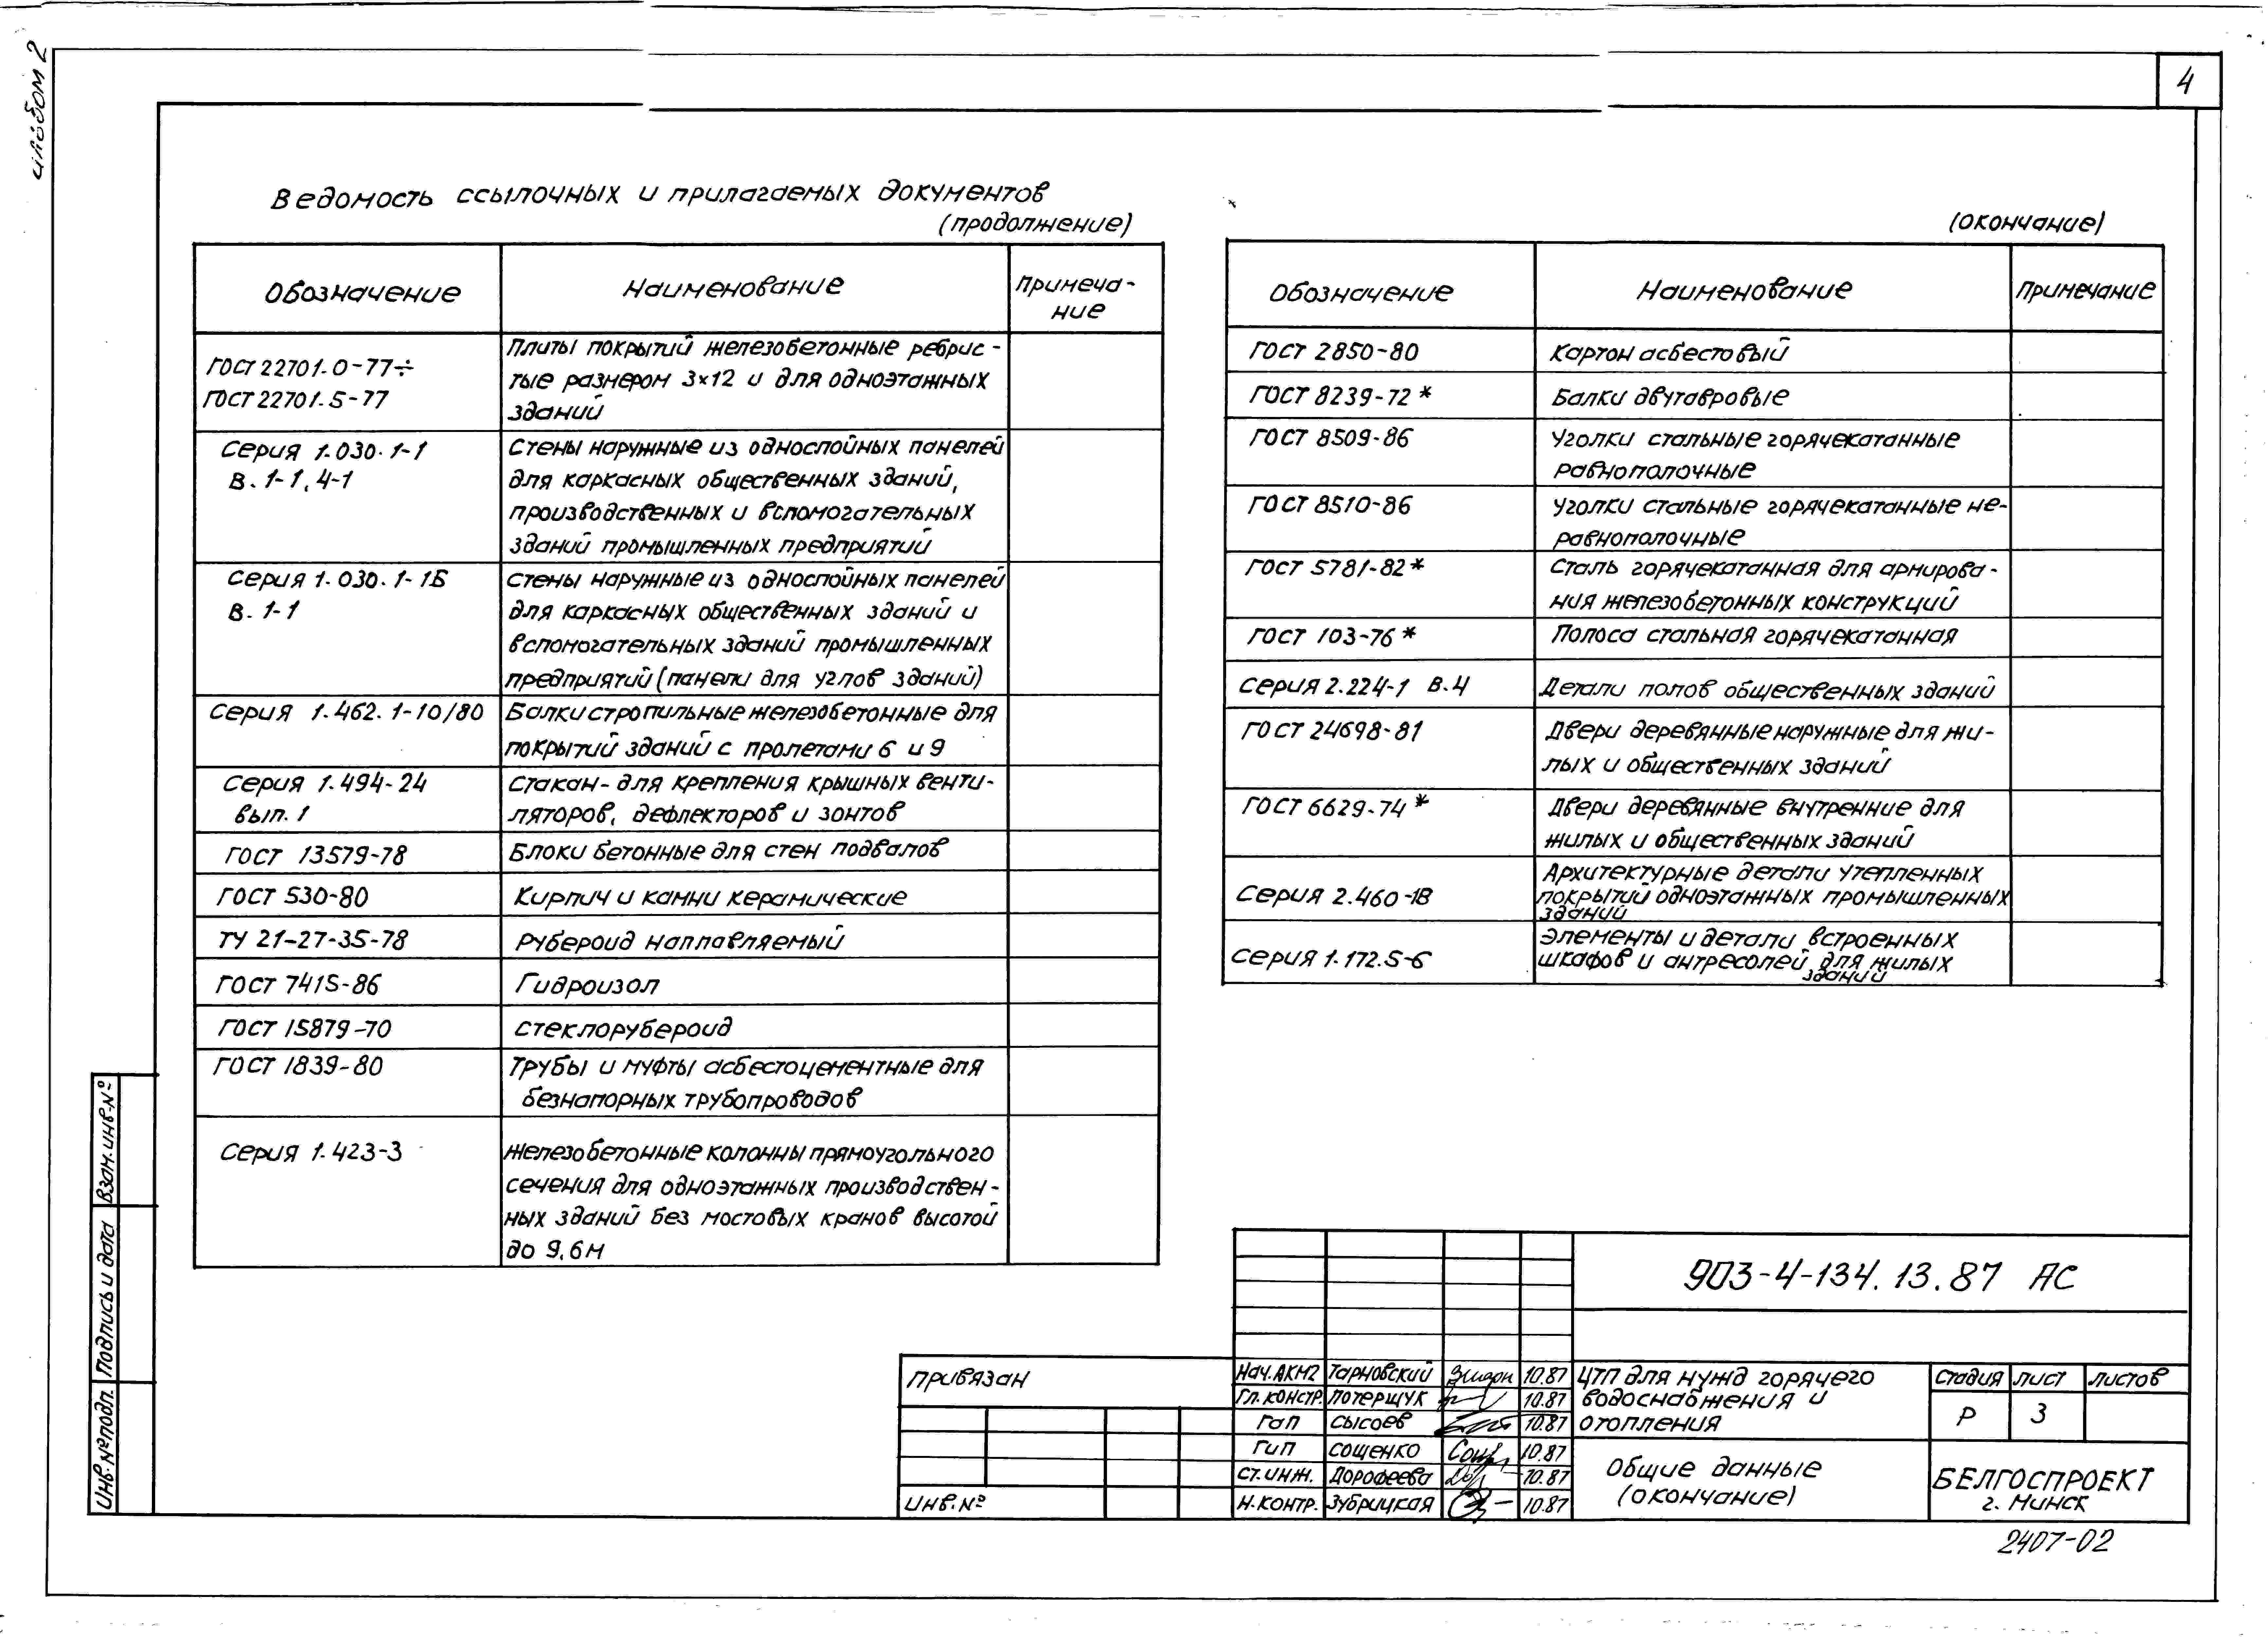 Альбом 2
4
Ведомость ссылочных и прилагаемых документов
(продолжение)
Обозначение
Наименование
Примеча-
ние
ГОСТ 22701.0-77÷
ГОСТ 22701.5-77
Плиты покрытий железобетонные ребрис-
тые размером 3×12 и для одноэтажных
зданий
Серия 1.030.1-1
в. 1-1, 4-1
Стены наружные из однослойных панелей
для каркасных общественных зданий,
производственных и вспомогательных
зданий промышленных предприятий
Серия 1.030.1-1Б
в. 1-1
Стены наружные из однослойных панелей
для каркасных общественных зданий и
вспомогательных зданий промышленных
предприятий (панели для углов зданий)
Серия 1.462.1-10/80
Балки стропильные железобетонные для
покрытий зданий с пролетами 6 и 9
Серия 1.494-24
вып. 1
Стакан- для крепления крышных венти-
ляторов, дефлекторов и зонтов
ГОСТ 13579-78
Блоки бетонные для стен подвалов
ГОСТ 530-80
Кирпич и камни керамические
ТУ 21-27-35-78
Рубероид наплавляемый
ГОСТ 7415-86
Гидроизол
ГОСТ 15879-70
Стеклорубероид
ГОСТ 1839-80
Трубы и муфты асбестоцементные для
безнапорных трубопроводов
Серия 1.423-3
Железобетонные колонны прямоугольного
сечения для одноэтажных производствен-
ных зданий без мостовых кранов высотой
до 9,6м
(окончание)
Обозначение
Наименование
Примечание
ГОСТ 2850-80
Картон асбестовый
ГОСТ 8239-72*
Балки двутавровые
ГОСТ 8509-86
Уголки стальные горячекатанные
равнополочные
ГОСТ 8510-86
Уголки стальные горячекатанные не-
равнополочные
ГОСТ 5781-82*
Сталь горячекатанная для армирова-
ния железобетонных конструкций
ГОСТ 103-76*
Полоса стальная горячекатанная
Серия 2.224-1 в.4
Детали полов общественных зданий
ГОСТ 24698-81
Двери деревянные наружные для жи-
лых и общественных зданий
ГОСТ 6629-74*
Двери деревянные внутренние для
жилых и общественных зданий
Серия 2.460-18
Архитектурные детали утепленных
покрытий одноэтажных промышленных
зданий
Серия 1.172.5-6
Элементы и детали встроенных
шкафов и антресолей для жилых
зданий
Взам.инв.№
Подпись и дата
Инв.№подл.
903-4-134.13.87 АС
Привязан
Инв.№
Нач.АКМ2 Тарновский 10.87
Гл.констр. Потерщук 10.87
ГАП Сысоев 10.87
ГИП Сощенко 10.87
Ст.инж. Дорофеева 10.87
Н.контр. Зубрицкая 10.87
ЦТП для нужд горячего
водоснабжения и
отопления
Стадия Лист Листов
Р 3
Общие данные
(окончание)
БЕЛГОСПРОЕКТ
г. Минск
2407-02